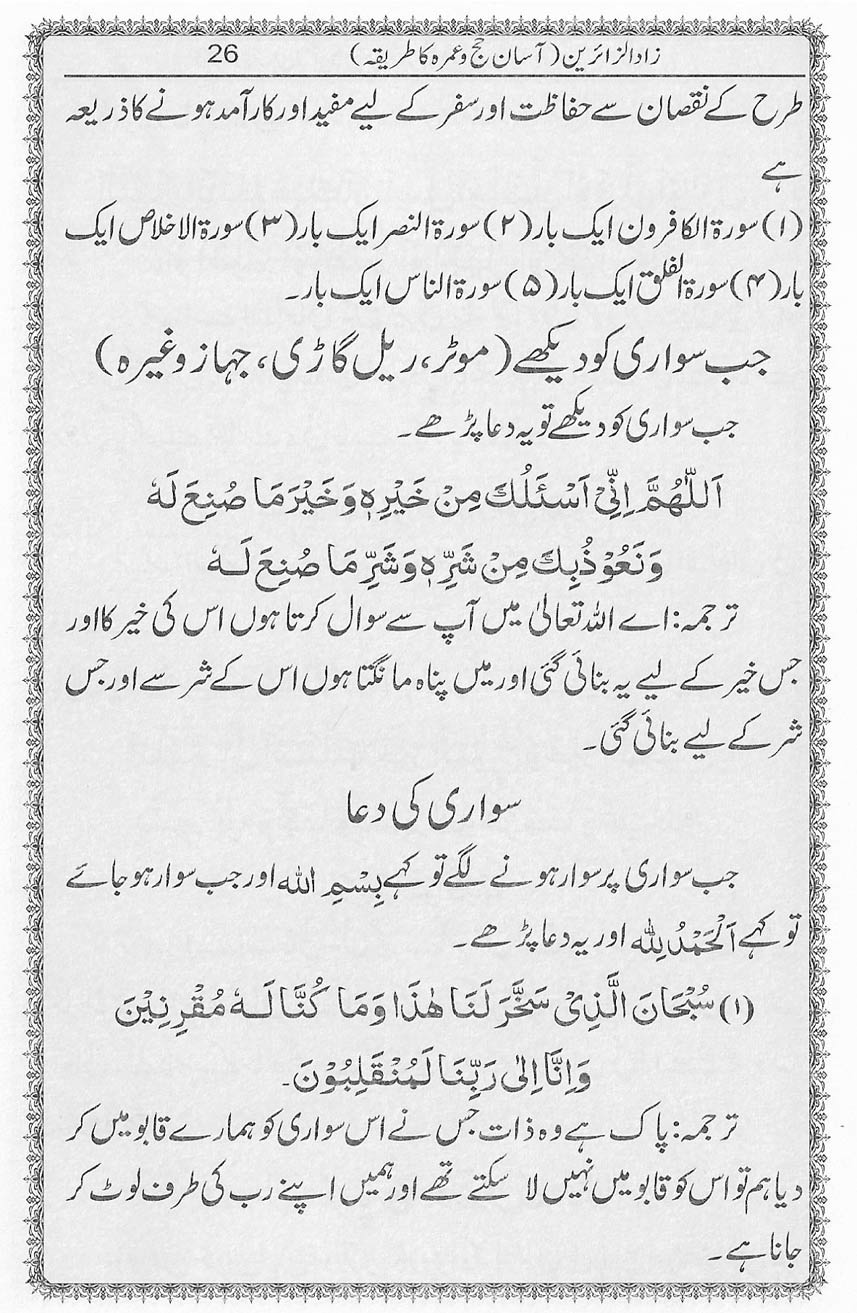 زاد الزائرین (آسان حج و عمرہ کا طریقہ) 26
طرح کے نقصان سے حفاظت اور سفر کے لیے مفید اور کار آمد ہونے کا ذریعہ
ہے
(۱) سورۃ الکافرون ایک بار (۲) سورۃ النصر ایک بار (۳) سورۃ الاخلاص ایک
بار (۴) سورۃ الفلق ایک بار (۵) سورۃ الناس ایک بار۔
جب سواری کو دیکھے (موٹر، ریل گاڑی، جہاز وغیرہ)
جب سواری کو دیکھے تو یہ دعا پڑھے۔
اَللّٰهُمَّ اِنِّیْ اَسْئَلُكَ مِنْ خَیْرِهٖ وَخَیْرَ مَا صُنِعَ لَهٗ
وَنَعُوْذُبِكَ مِنْ شَرِّهٖ وَشَرِّ مَا صُنِعَ لَهٗ
ترجمہ: اے اللہ تعالیٰ میں آپ سے سوال کرتا ہوں اس کی خیر کا اور
جس خیر کے لیے یہ بنائی گئی اور میں پناہ مانگتا ہوں اس کے شر سے اور جس
شر کے لیے بنائی گئی۔
سواری کی دعا
جب سواری پر سوار ہونے لگے تو کہے بِسْمِ الله اور جب سوار ہو جائے
تو کہے اَلْحَمْدُ لِلّٰه اور یہ دعا پڑھے۔
(۱) سُبْحَانَ الَّذِیْ سَخَّرَ لَنَا هٰذَا وَمَا كُنَّا لَهٗ مُقْرِنِیْنَ
وَاِنَّا اِلٰی رَبِّنَا لَمُنْقَلِبُوْنَ۔
ترجمہ: پاک ہے وہ ذات جس نے اس سواری کو ہمارے قابو میں کر
دیا ہم تو اس کو قابو میں نہیں لا سکتے تھے اور ہمیں اپنے رب کی طرف لوٹ کر
جانا ہے۔